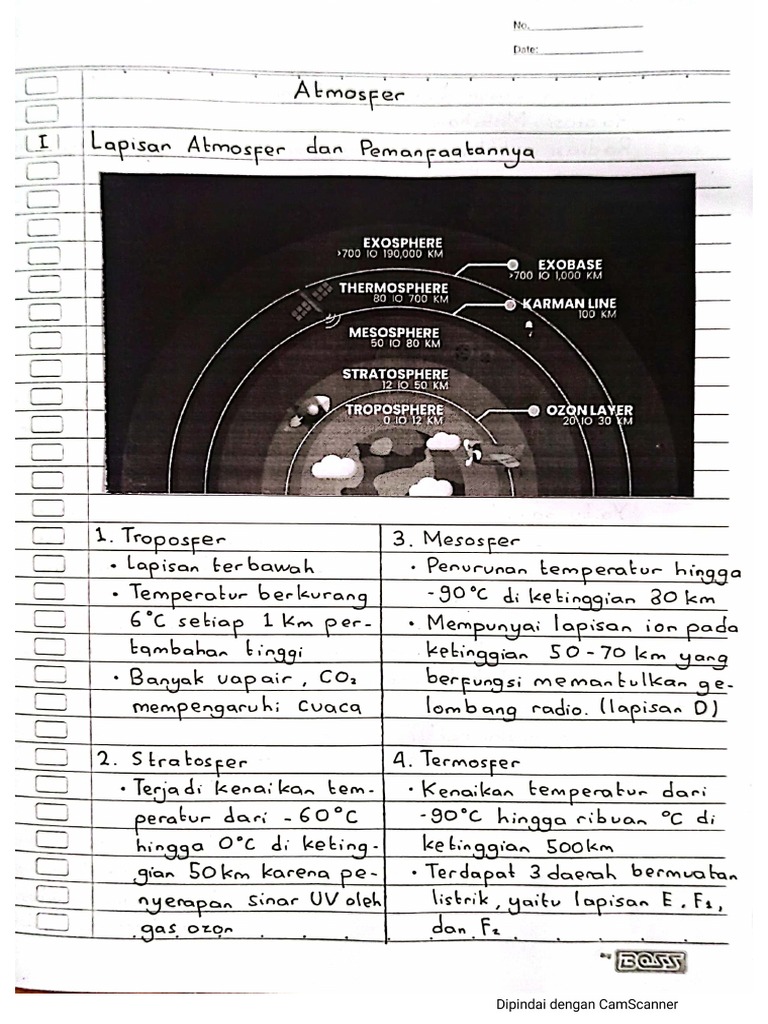 No.
Date:
Atmosfer
I Lapisan Atmosfer dan Pemanfaatannya
EXOSPHERE
>700 IO 190,000 KM
EXOBASE
>700 IO 1,000 KM
THERMOSPHERE
80 IO 700 KM
KARMAN LINE
100 KM
MESOSPHERE
50 IO 80 KM
STRATOSPHERE
12 IO 50 KM
TROPOSPHERE
0 IO 12 KM
OZON LAYER
20 IO 30 KM
1. Troposfer
• Lapisan terbawah
• Temperatur berkurang
6°C setiap 1 km per-
tambahan tinggi
• Banyak uap air, CO₂
mempengaruhi cuaca
2. Stratosfer
• Terjadi kenaikan tem-
peratur dari -60°C
hingga 0°C di keting-
gian 50 km karena pe-
nyerapan sinar UV oleh
gas ozon
3. Mesosfer
• Penurunan temperatur hingga
-90°C di ketinggian 80 km
• Mempunyai lapisan ion pada
ketinggian 50-70 km yang
berfungsi memantulkan ge-
lombang radio. (lapisan D)
4. Termosfer
• Kenaikan temperatur dari
-90°C hingga ribuan °C di
ketinggian 500km
• Terdapat 3 daerah bermuatan
listrik, yaitu lapisan E, F₁,
dan F₂
by BOSS
Dipindai dengan CamScanner